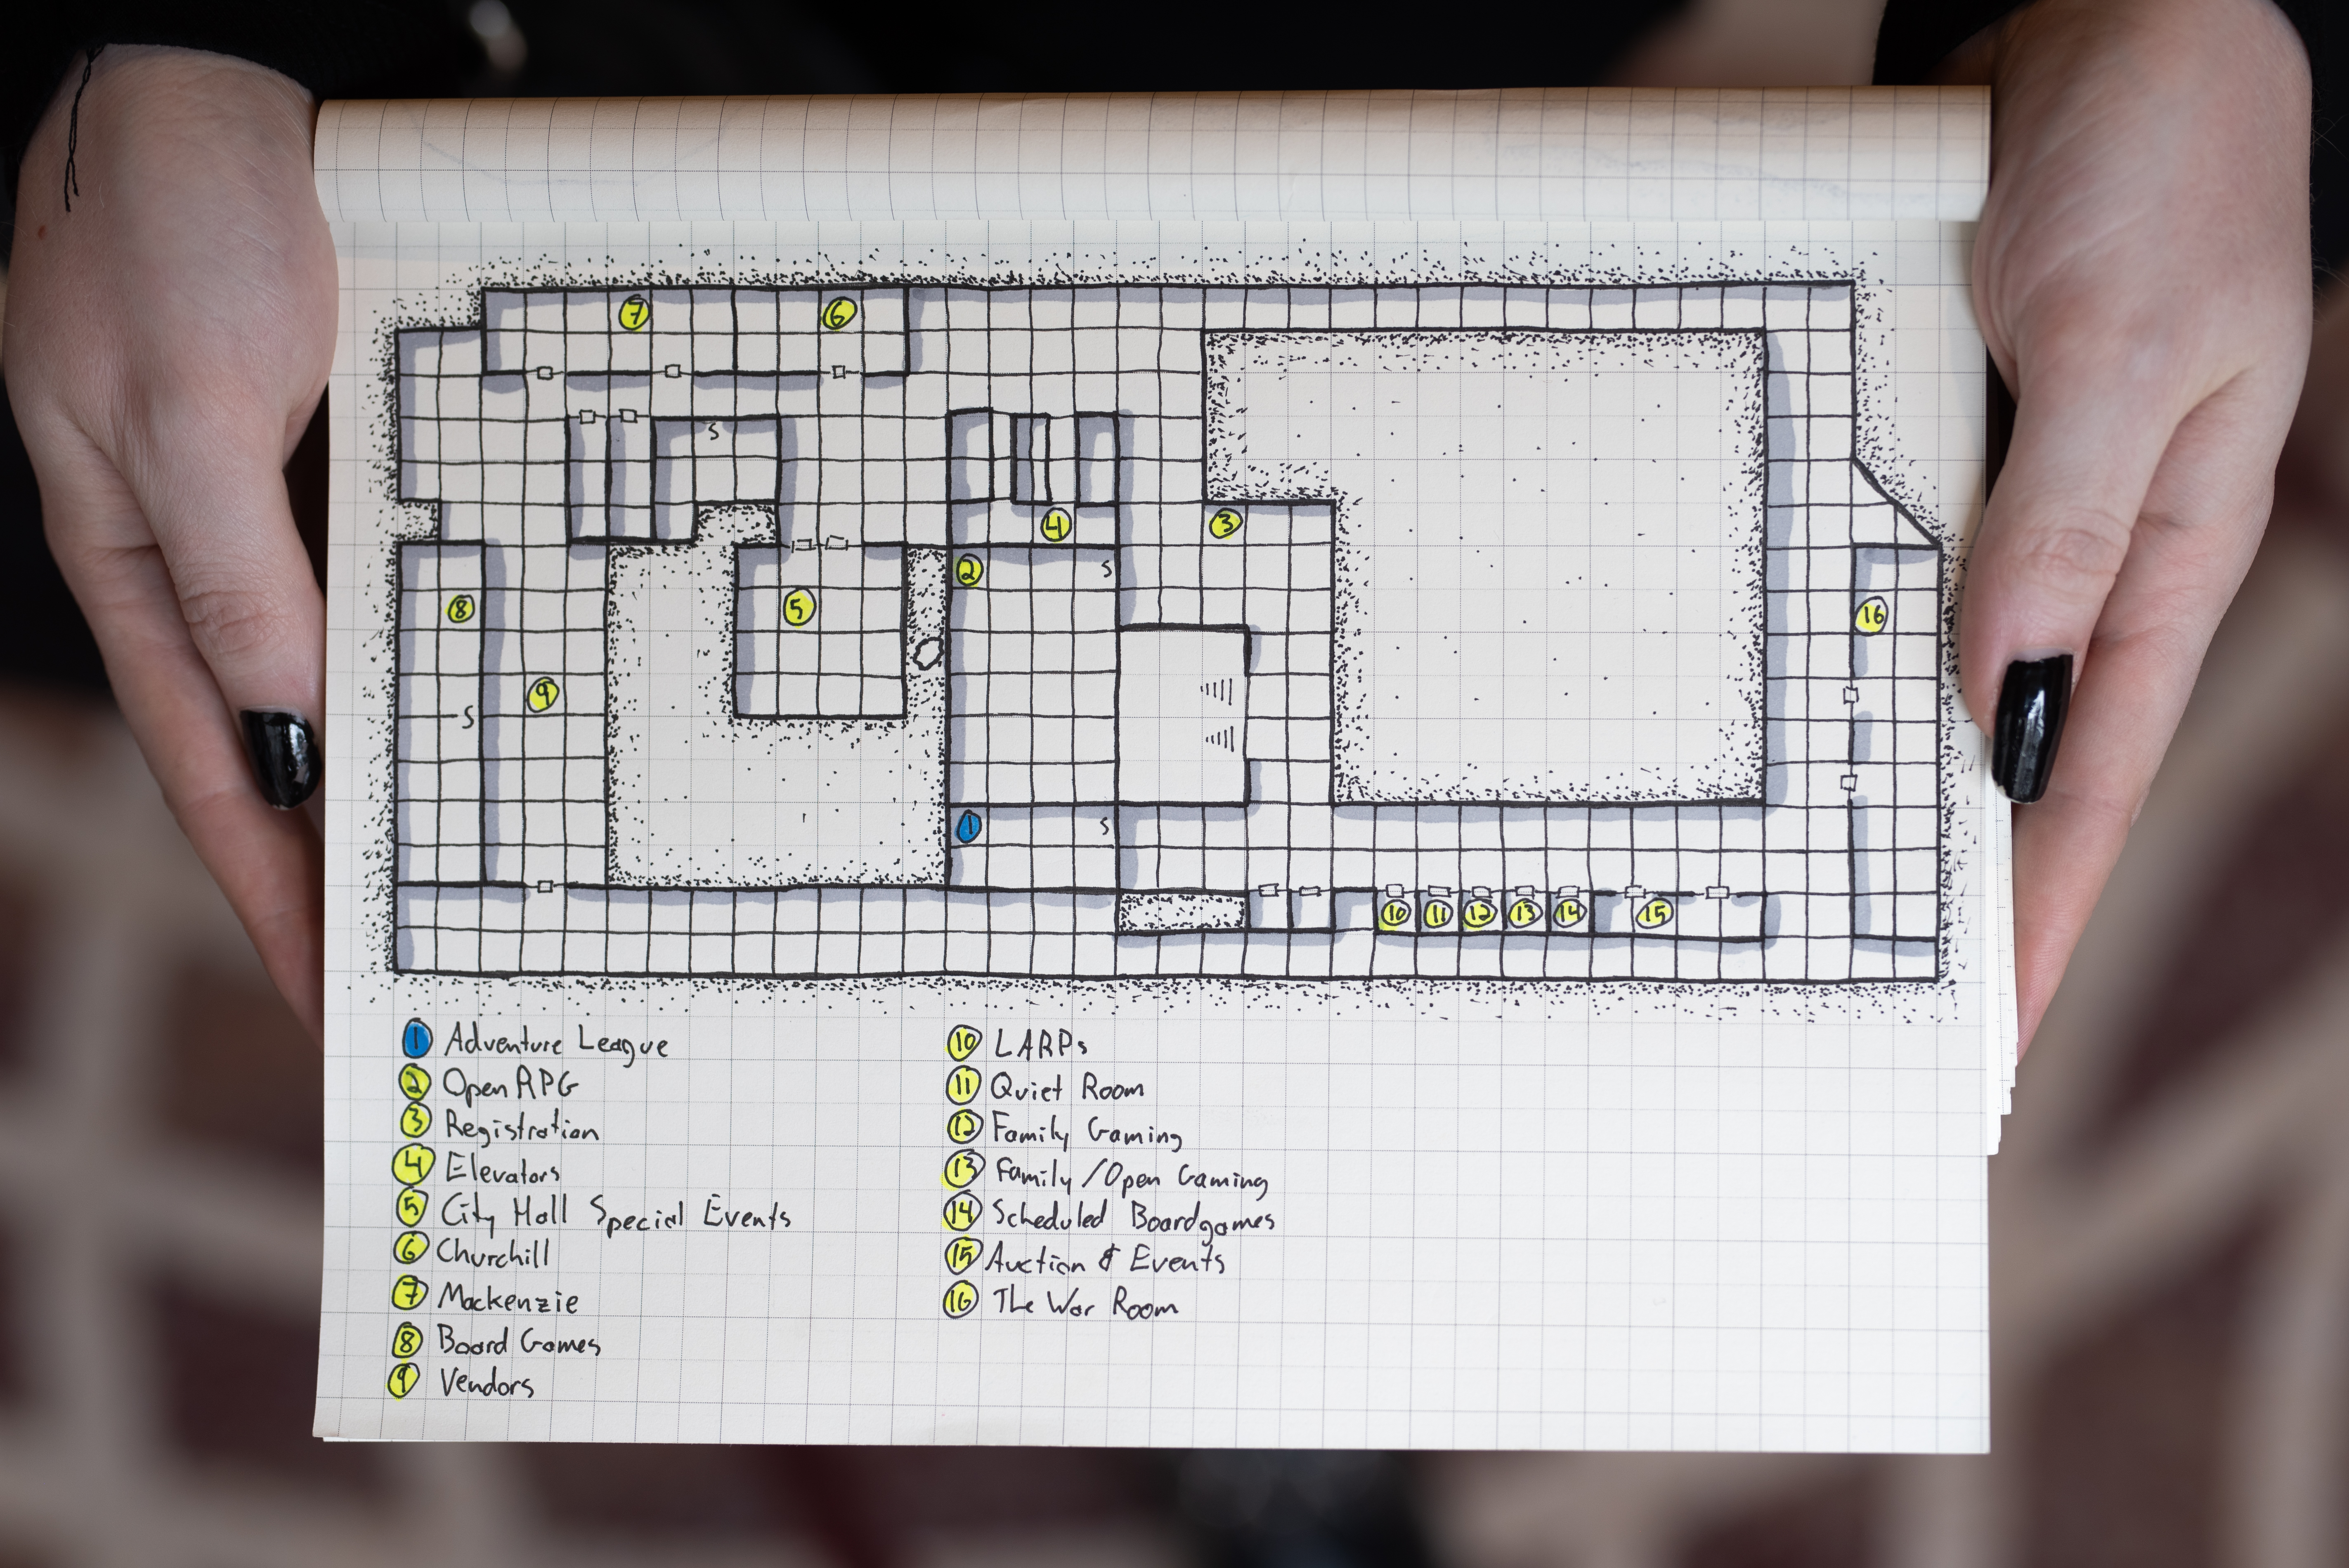 7 6
S
4 3
2 S
5
8 16
9
S
1 S
10 11 12 13 14 15
1 Adventure League
2 Open RPG
3 Registration
4 Elevators
5 City Hall Special Events
6 Churchill
7 Mackenzie
8 Board Games
9 Vendors
10 LARPs
11 Quiet Room
12 Family Gaming
13 Family/Open Gaming
14 Scheduled Boardgames
15 Auction & Events
16 The War Room